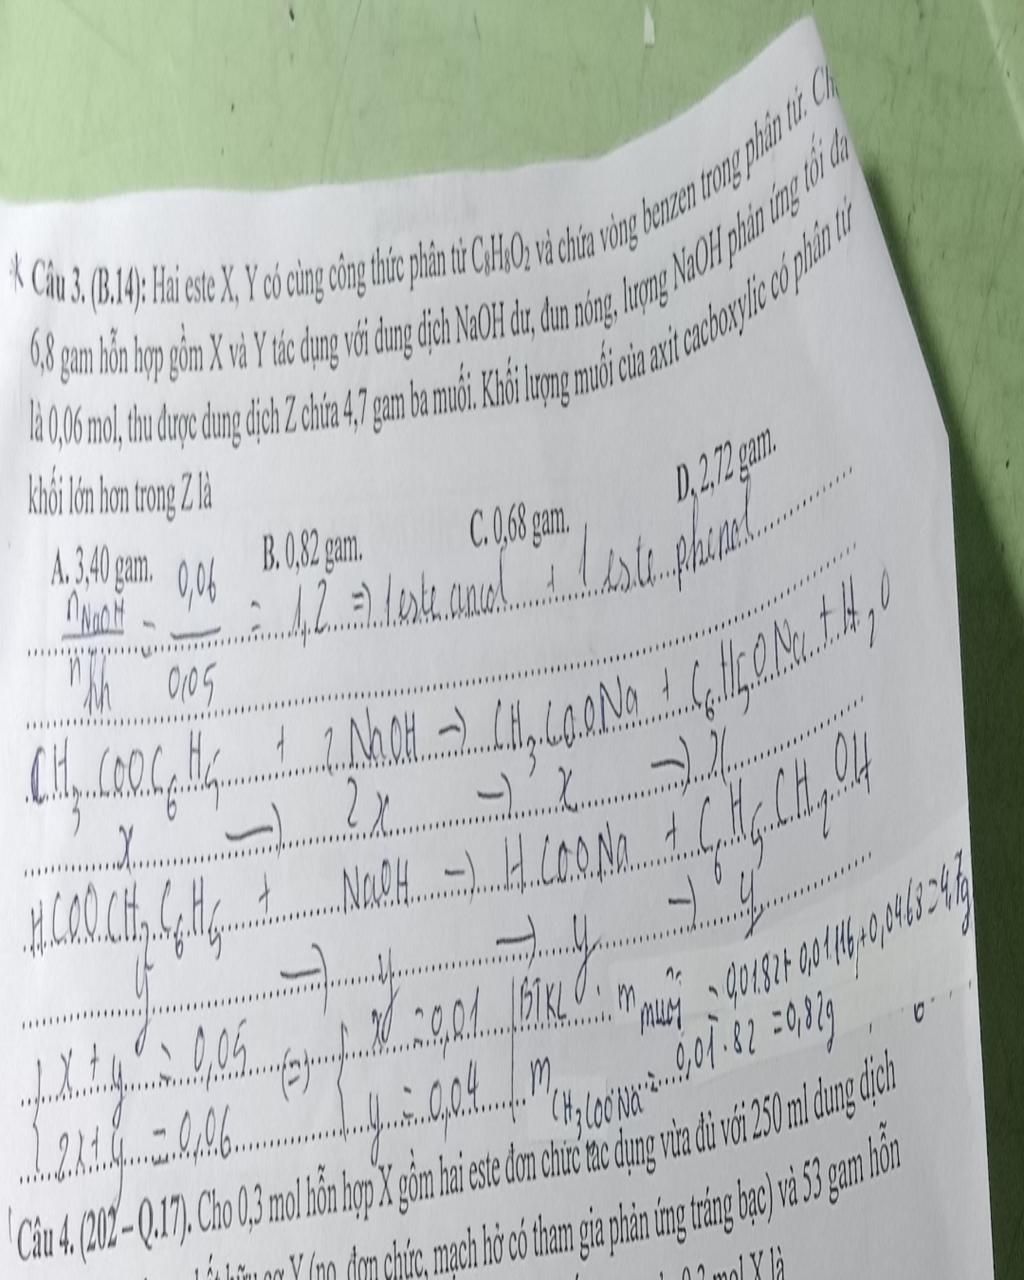 * Câu 3. (B.14): Hai este X, Y có cùng công thức phân tử C₈H₈O₂ và chứa vòng benzen trong phân tử.
6,8 gam hỗn hợp gồm X và Y tác dụng với dung dịch NaOH dư, đun nóng, lượng NaOH phản ứng tối đa
là 0,06 mol, thu được dung dịch Z chứa 4,7 gam ba muối. Khối lượng muối của axit cacboxylic có phân tử
khối lớn hơn trong Z là
A. 3,40 gam. B. 0,82 gam. C. 0,68 gam. D. 2,72 gam.
nNaOH / nhh = 0,06 / 0,05 = 1,2 => 1 este ancol + 1 este phenol
CH₃COOC₆H₅ + 2NaOH → CH₃COONa + C₆H₅ONa + H₂O
x → 2x → x → x
HCOOCH₂C₆H₅ + NaOH → HCOONa + C₆H₅CH₂OH
y → y → y → y
{ x + y = 0,05 (=) { x = 0,01 | BTKL : m muối = 0,01.82 + 0,01.116 + 0,04.68 = 4,7g
{ 2x + y = 0,06 { y = 0,04 | m CH₃COONa = 0,01.82 = 0,82g
Câu 4. (202 – Q.17). Cho 0,3 mol hỗn hợp X gồm hai este đơn chức tác dụng vừa đủ với 250 ml dung dịch
Y (no, đơn chức, mạch hở có tham gia phản ứng tráng bạc) và 53 gam hỗn
mol X là